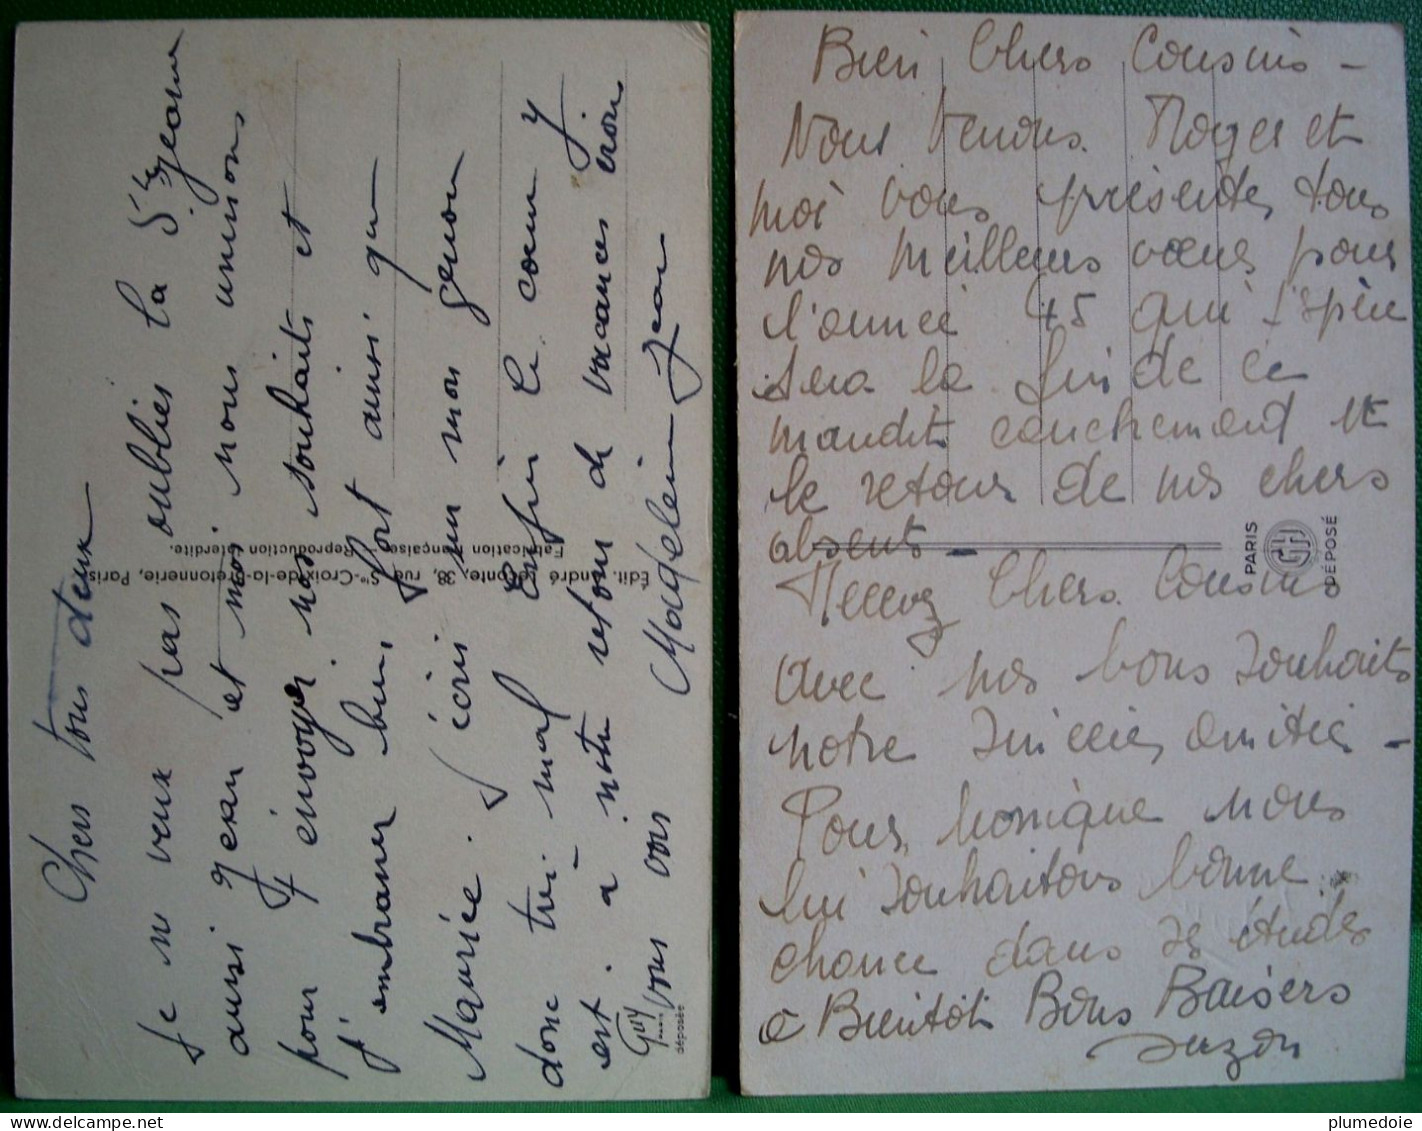 Chers tous deux
Je ne veux pas oublier la Ste Jeanne
aussi Jean et moi nous nous unissons
pour t'envoyer nos souhaits et
t'embrasser bien fort ainsi que
Maurice. J'écris sur mon genou
donc très mal. Enfin le coeur y
est. à notre retour de vacances irons
vous voir
Madeleine Jean
Édit. André Leconte, 38, rue Ste-Croix-de-la-Bretonnerie, Paris.
Fabrication Française Reproduction interdite.
Guy
déposée
Bien Chers Cousins -
Nous venons Roger et
moi vous présenter tous
nos meilleurs vœux pour
l'année 45 qui j'espère
sera la fin de ce
maudit cauchemard et
le retour de nos chers
absents -
Recevez Chers Cousins
avec nos bons souhaits
notre sincère amitié -
Pour Monique nous
lui souhaitons bonne
chance dans ses études
à Bientôt Bons Baisers
Suzon
PARIS
DÉPOSÉ
plumedoie